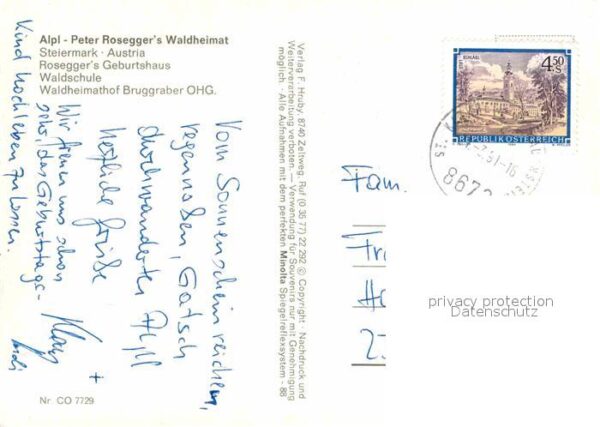 Alpl - Peter Rosegger's Waldheimat
Steiermark · Austria
Rosegger's Geburtshaus
Waldschule
Waldheimathof Bruggraber OHG.
Vom Sonnenschein reichem,
regennaßen, Gatsch
durchwanderten Alpl
herzliche Grüße
Wir freuen uns schon
sehr, das Geburtstags-
Kind hochleben zu lassen.
+
Nr CO 7729
Verlag F. Hruby, 8740 Zeltweg, Ruf (0 35 77) 22 292 © Copyright · Nachdruck und
Weiterverarbeitung verboten. — Verwendung für Souvenirs nur mit Genehmigung
möglich · Alle Aufnahmen mit dem perfekten Minolta Spiegelreflexsystem · 88
4.50
S
REPUBLIK ÖSTERREICH
867
Fam.
Fr
H
2
privacy protection
Datenschutz